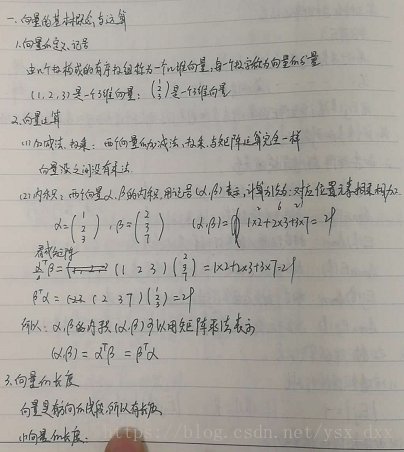 一、向量的基本概念与运算
1.向量的定义、记号
由n个数构成的有序数组称为一个n维向量,每一个数字称为向量的分量
(1,2,3)是一个3维向量;(1 2 3)是一个3维向量
2.向量运算
(1)加减法,数乘:两个向量的加减法,数乘,与矩阵运算完全一样
向量没之间没有乘法
(2)内积:两个向量α,β的内积,用记号(α,β)表示,计算方法为:对应位置元素相乘相加
α=(1 2 3),β=(2 3 7) (α,β)= 1×2+2×3+3×7=29
看成矩阵
αᵀβ= (1 2 3)(2 3 7)=1×2+2×3+3×7=29
βᵀα= (2 3 7)(1 2 3)=29
所以:α,β的内积(α,β)可以用矩阵乘法表示
(α,β)=αᵀβ=βᵀα
3.向量的长度
向量是有方向的线段,所以有长度
(1)向量的长度:
https://blog.csdn.net/ysx_dxx